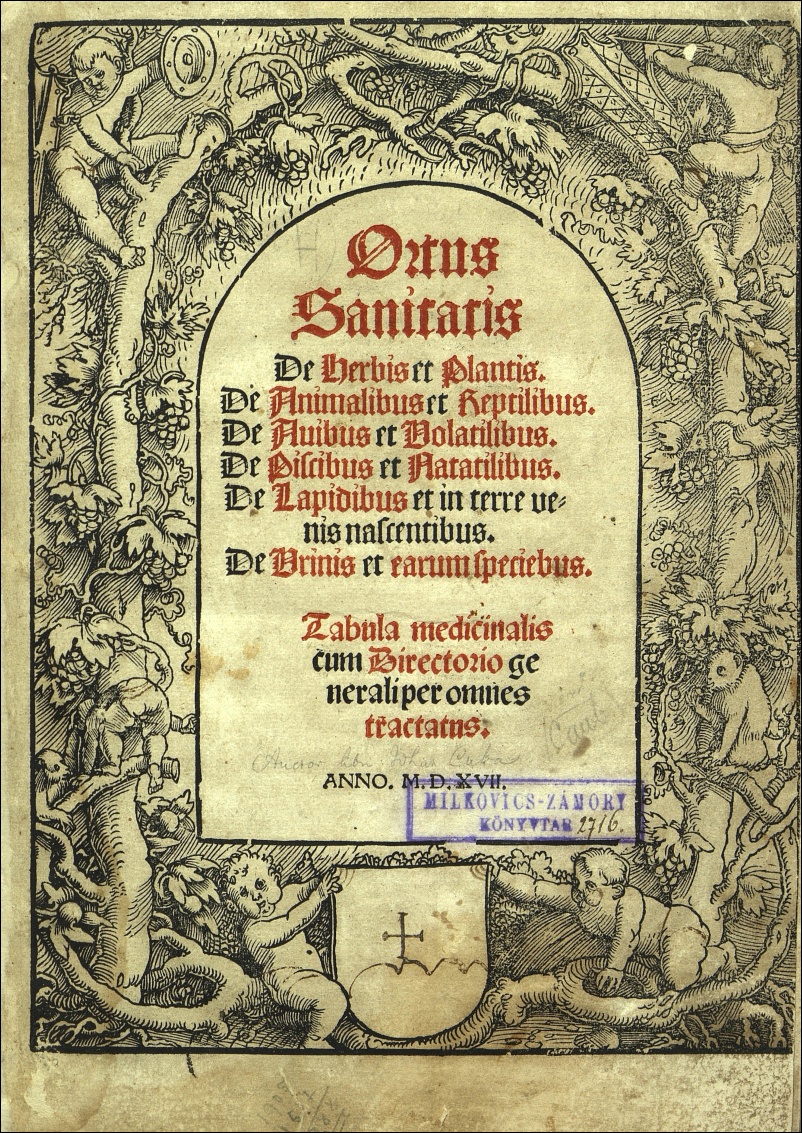 Ortus
Sanitatis
De Herbis et Plantis.
De Animalibus et Reptilibus.
De Auibus et Volatilibus.
De Piscibus et Natatilibus.
De Lapidibus et in terre ve⸗
nis nascentibus.
De Vrinis et earum speciebus.
Tabula medicinalis
cum Directorio ge
nerali per omnes
tractatus.
ANNO. M.D.XVII.
MILKOVICS-ZÁMORY
KÖNYVTÁR 2716.